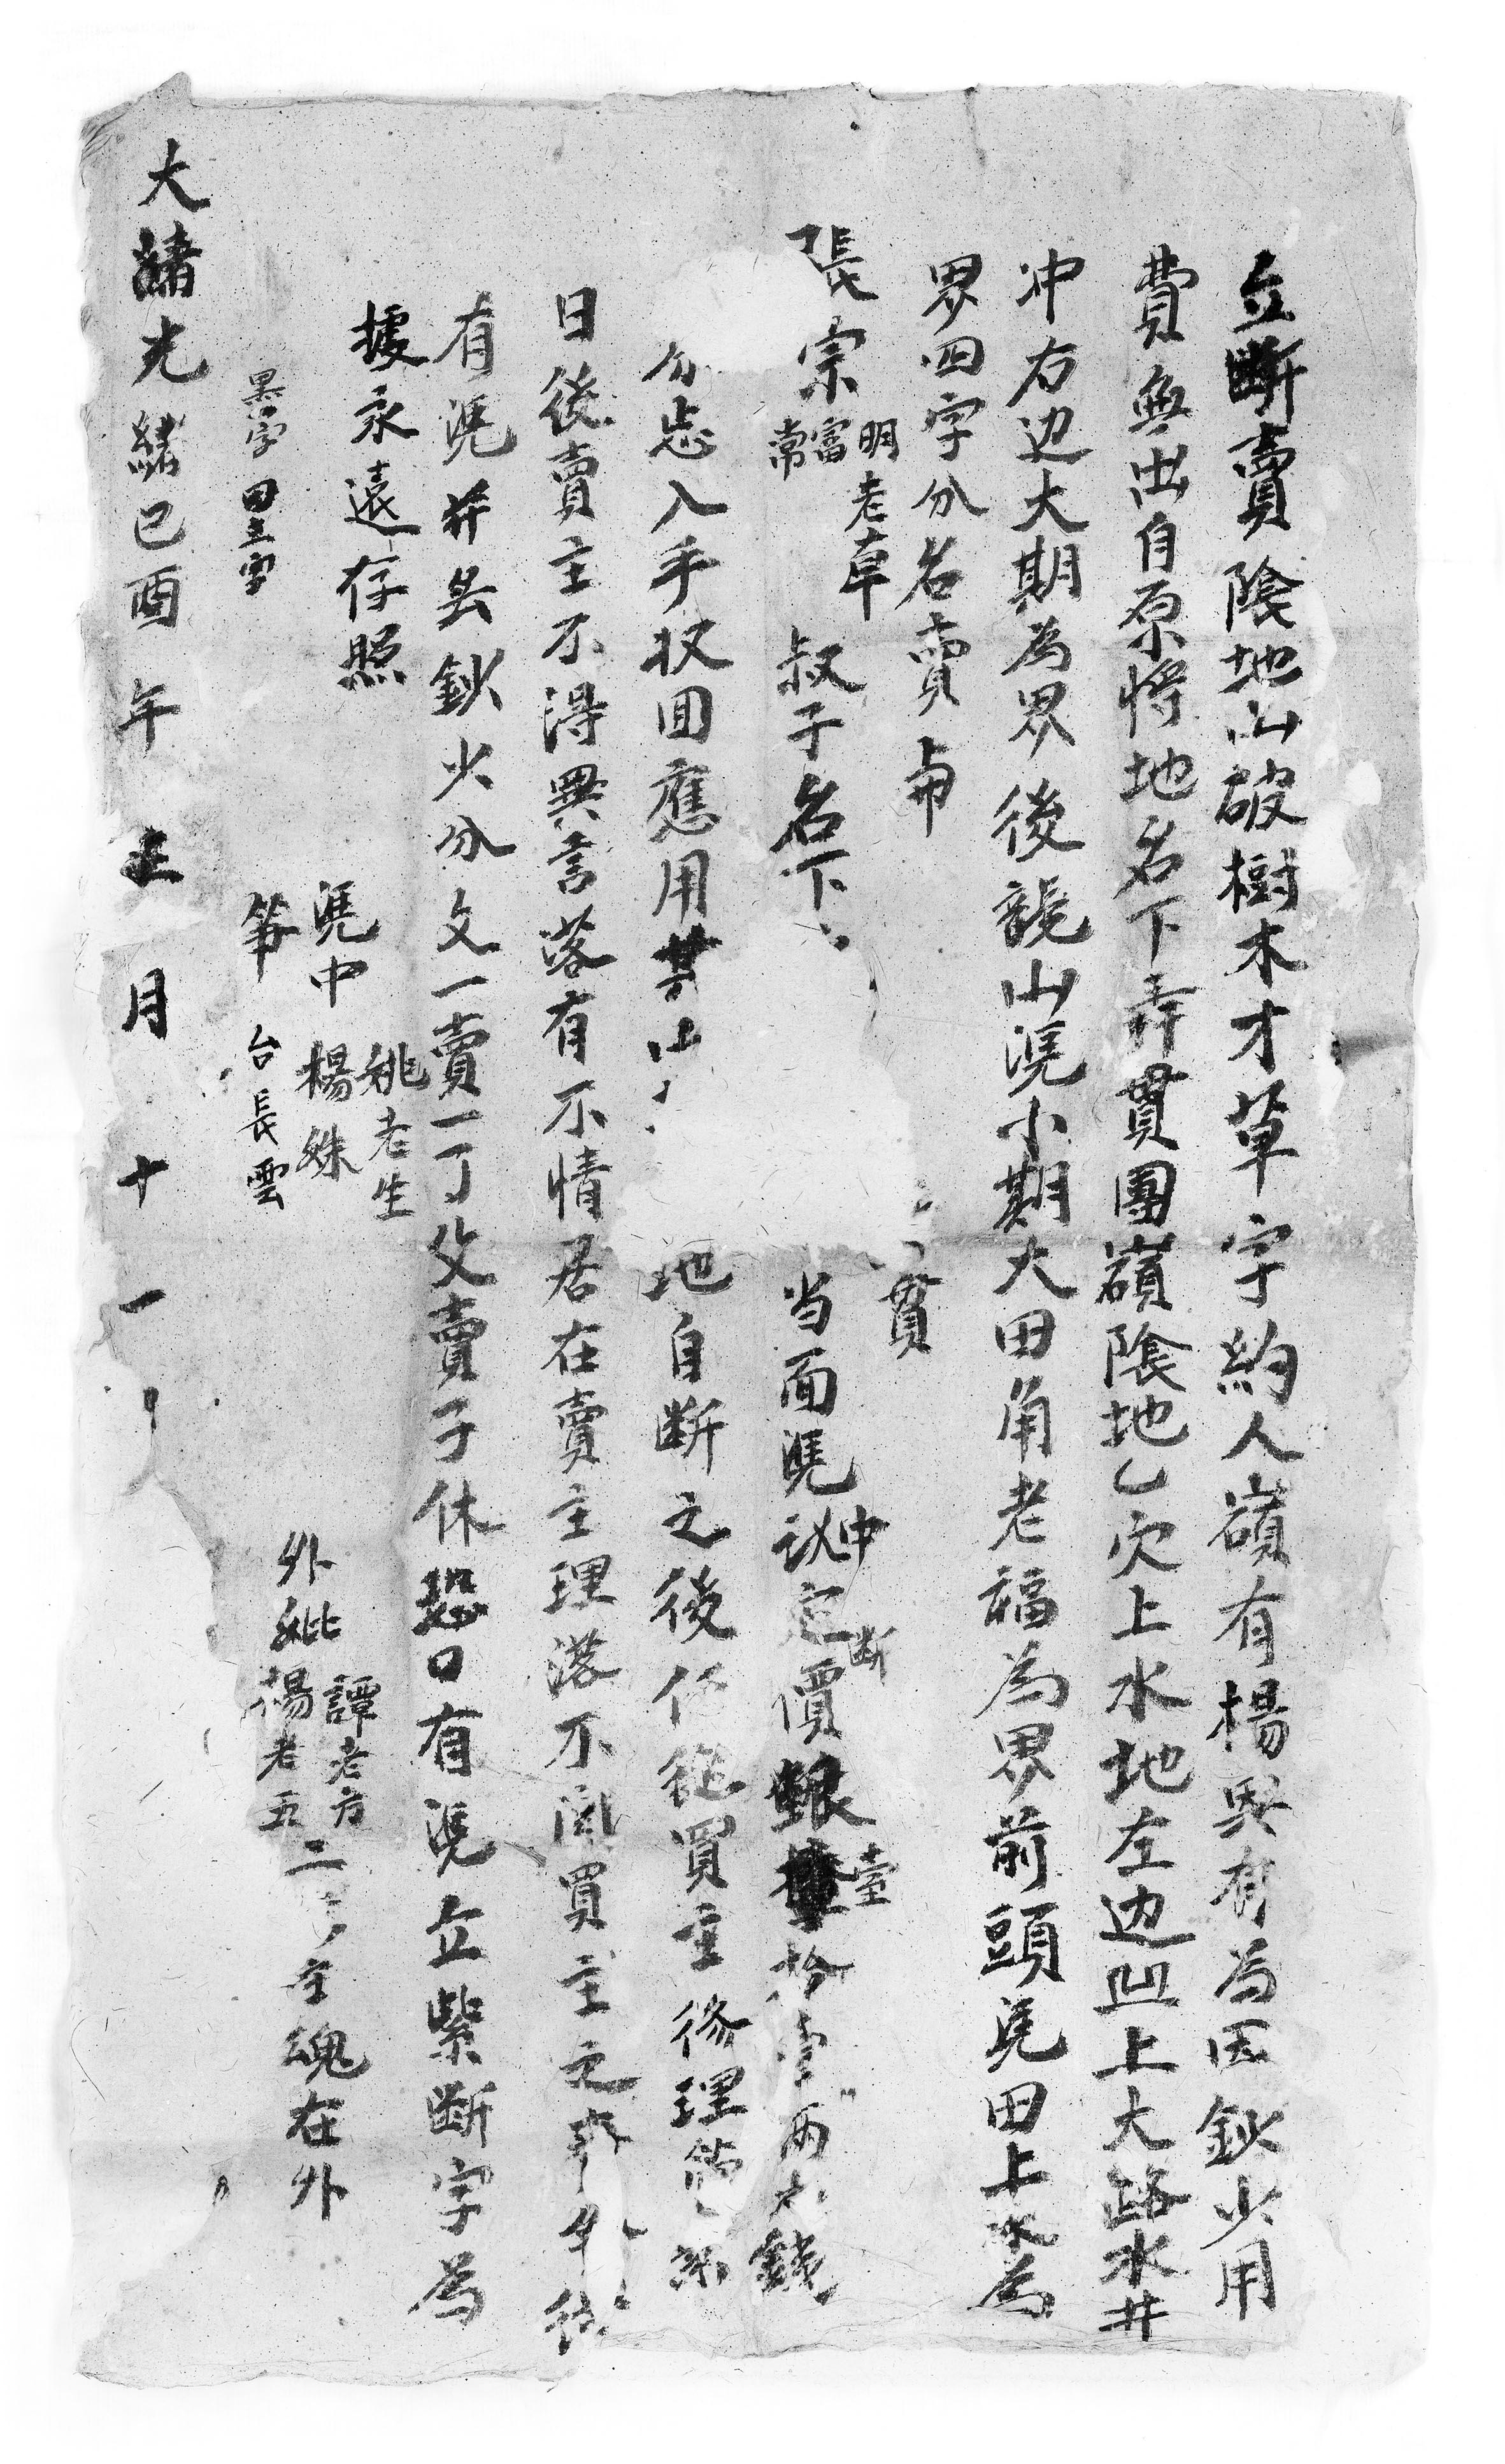 立斷賣陰地山破樹木才草字約人嶺有楊興有為因鈔少用
費無出自原将地名下弄貫團嶺陰地乙穴上水地左边凹上大路水井
冲右边大期為界後龍山凴小期大田角老福為界前頭凴田上水為
界四字分名賣与 貫
張宗明富常老草叔子名下 当面凴中议定斷價銀壹拾壹两六錢
分忘入手収囬應用其山 地自断之後任從買主修理
日後賣主不得異言落有不情居在賣主理落不関買主之事外
有凴并無鈔少分文一賣一了父賣子休恐口有凴立紫斷字為
據永遠存照
凴中 姚老生 楊姝
筆 台長雲
外批 譚老方 楊老五 二 主魂在外
黑字 田主字
大緒光緒己酉年正月十一